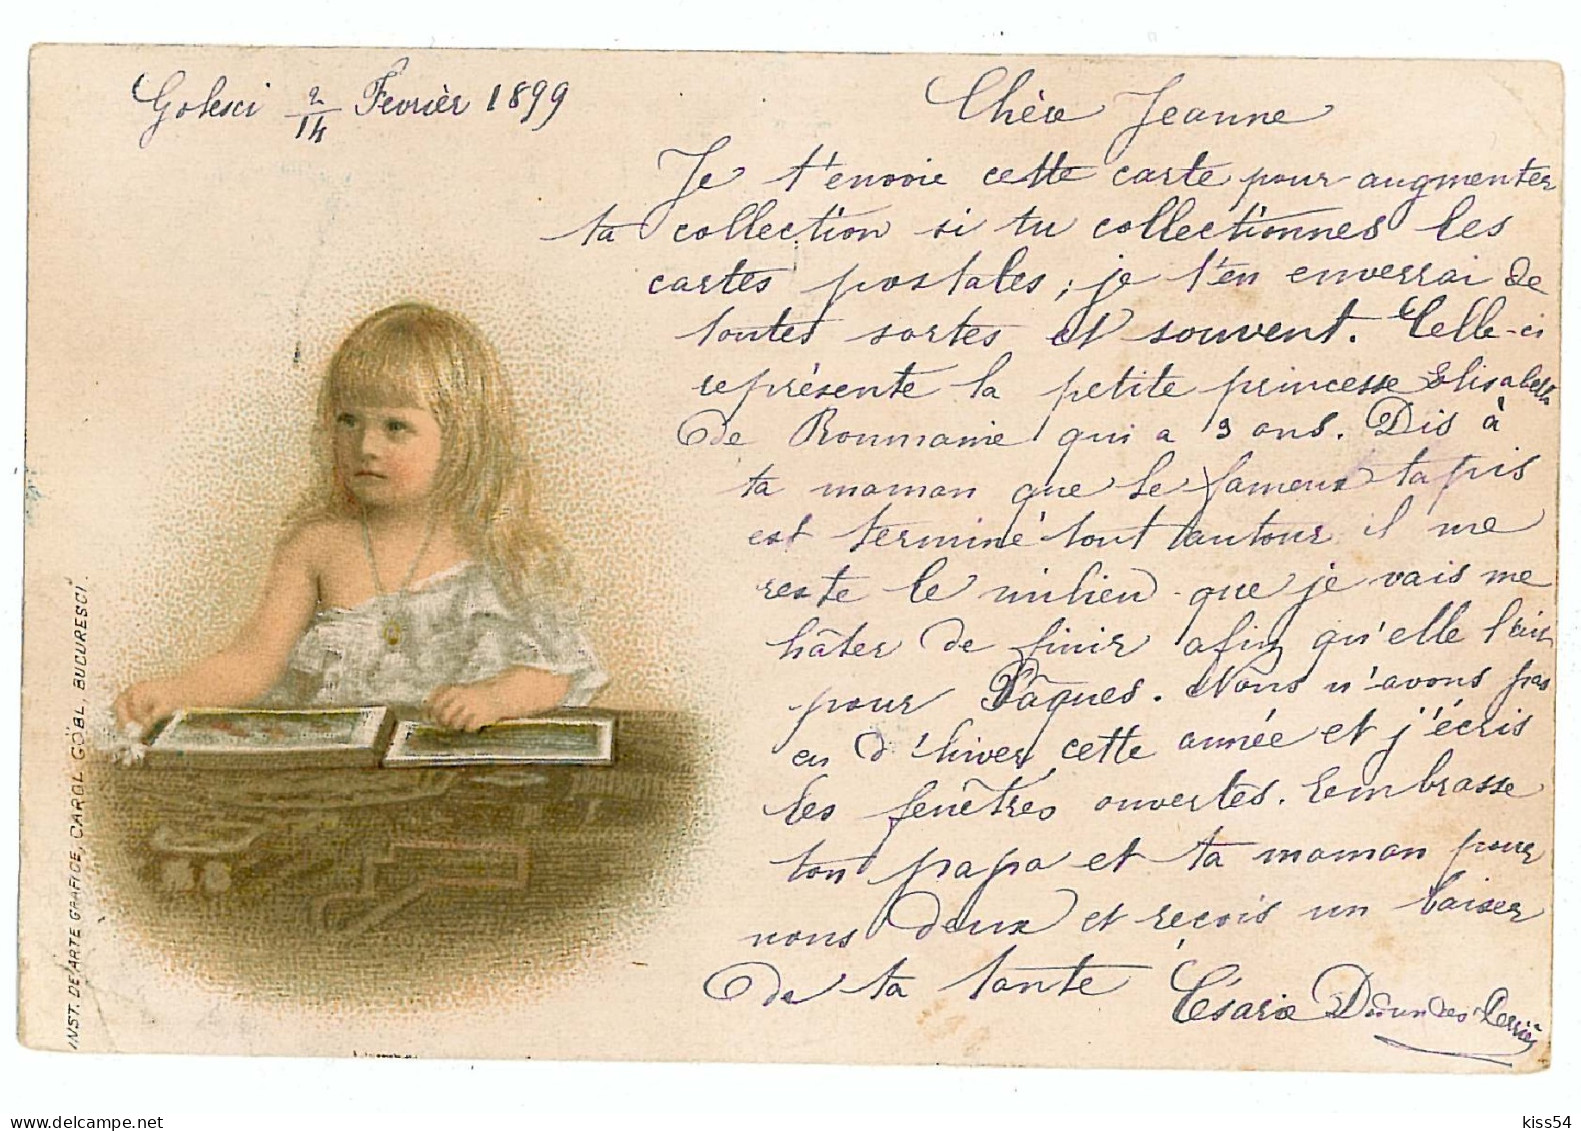 Golesci 2/14 Fevrièr 1899
Chère Jeanne
Je t'envoie cette carte pour augmenter
ta collection si tu collectionnes les
cartes postales; je t'en enverrai de
toutes sortes et souvent. Celle-ci
représente la petite princesse Elisabeth
de Roumanie qui a 3 ans. Dis à
ta maman que le fameux tapis
est terminé tout autour il me
reste le milieu que je vais me
hâter de finir afin qu'elle l'ait
pour Pâques. Nous n'avons pas
eu d'hiver cette année et j'écris
les fenêtres ouvertes. Embrasse
ton papa et ta maman pour
nous deux et reçois un baiser
de ta tante
Césarie
INST. DE ARTE GRAFICE, CAROL GÖBL, BUCURESCI.
kiss54